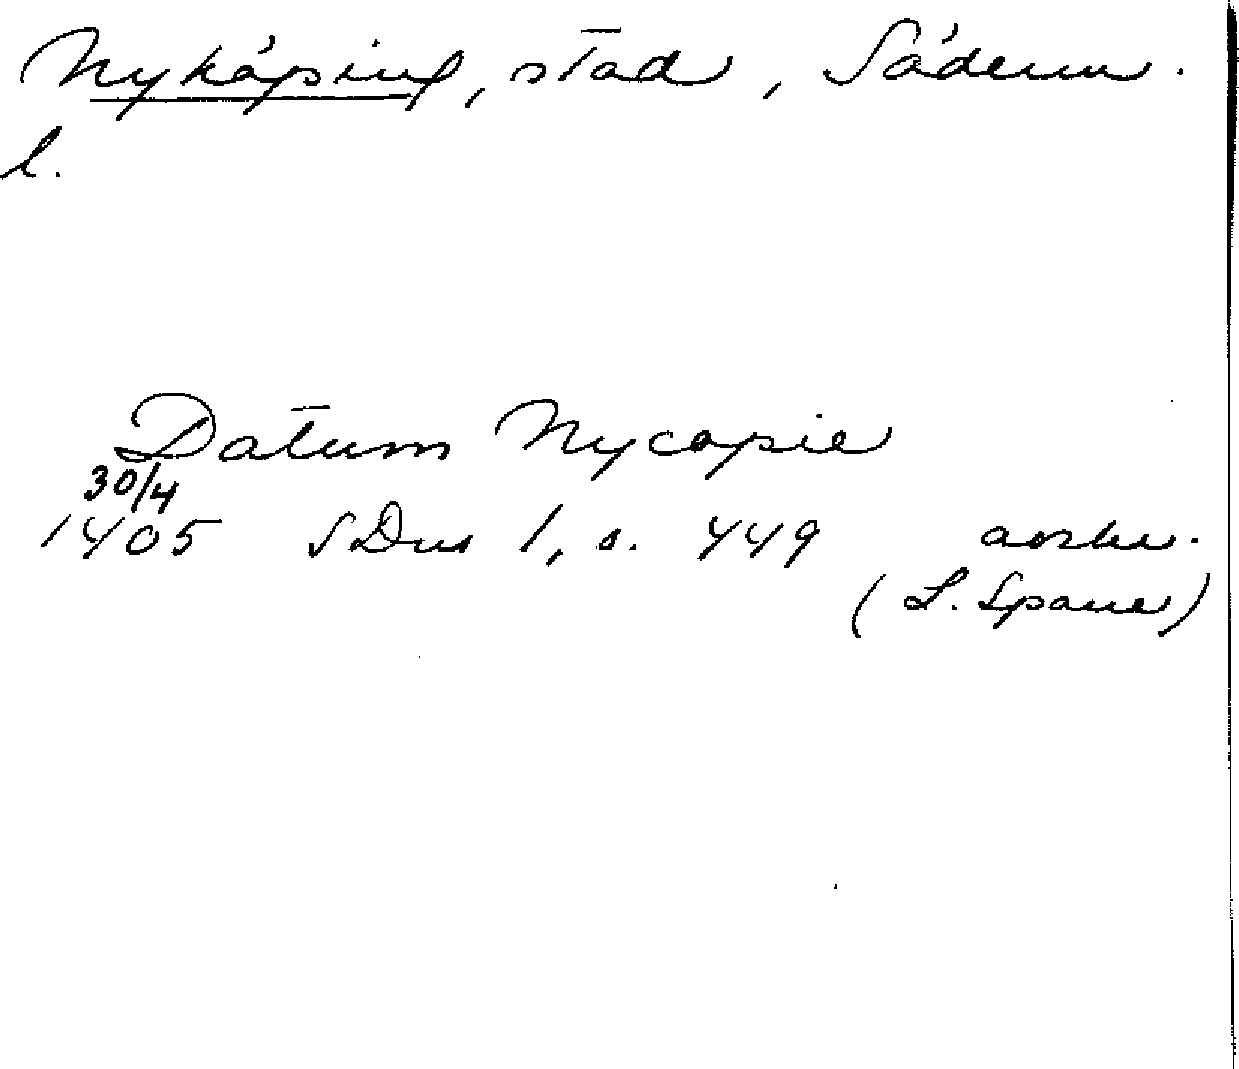 Nyköping, stad, Söderm.
l.
Datum Nycopie
30/4
1405 SDns 1, s. 449 avskr.
(L. Spane)